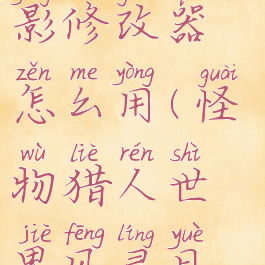 影修改器
zěn me yòng guài
怎么用(怪
wù liè rén shì
物猎人世
jiè fēng líng yuè